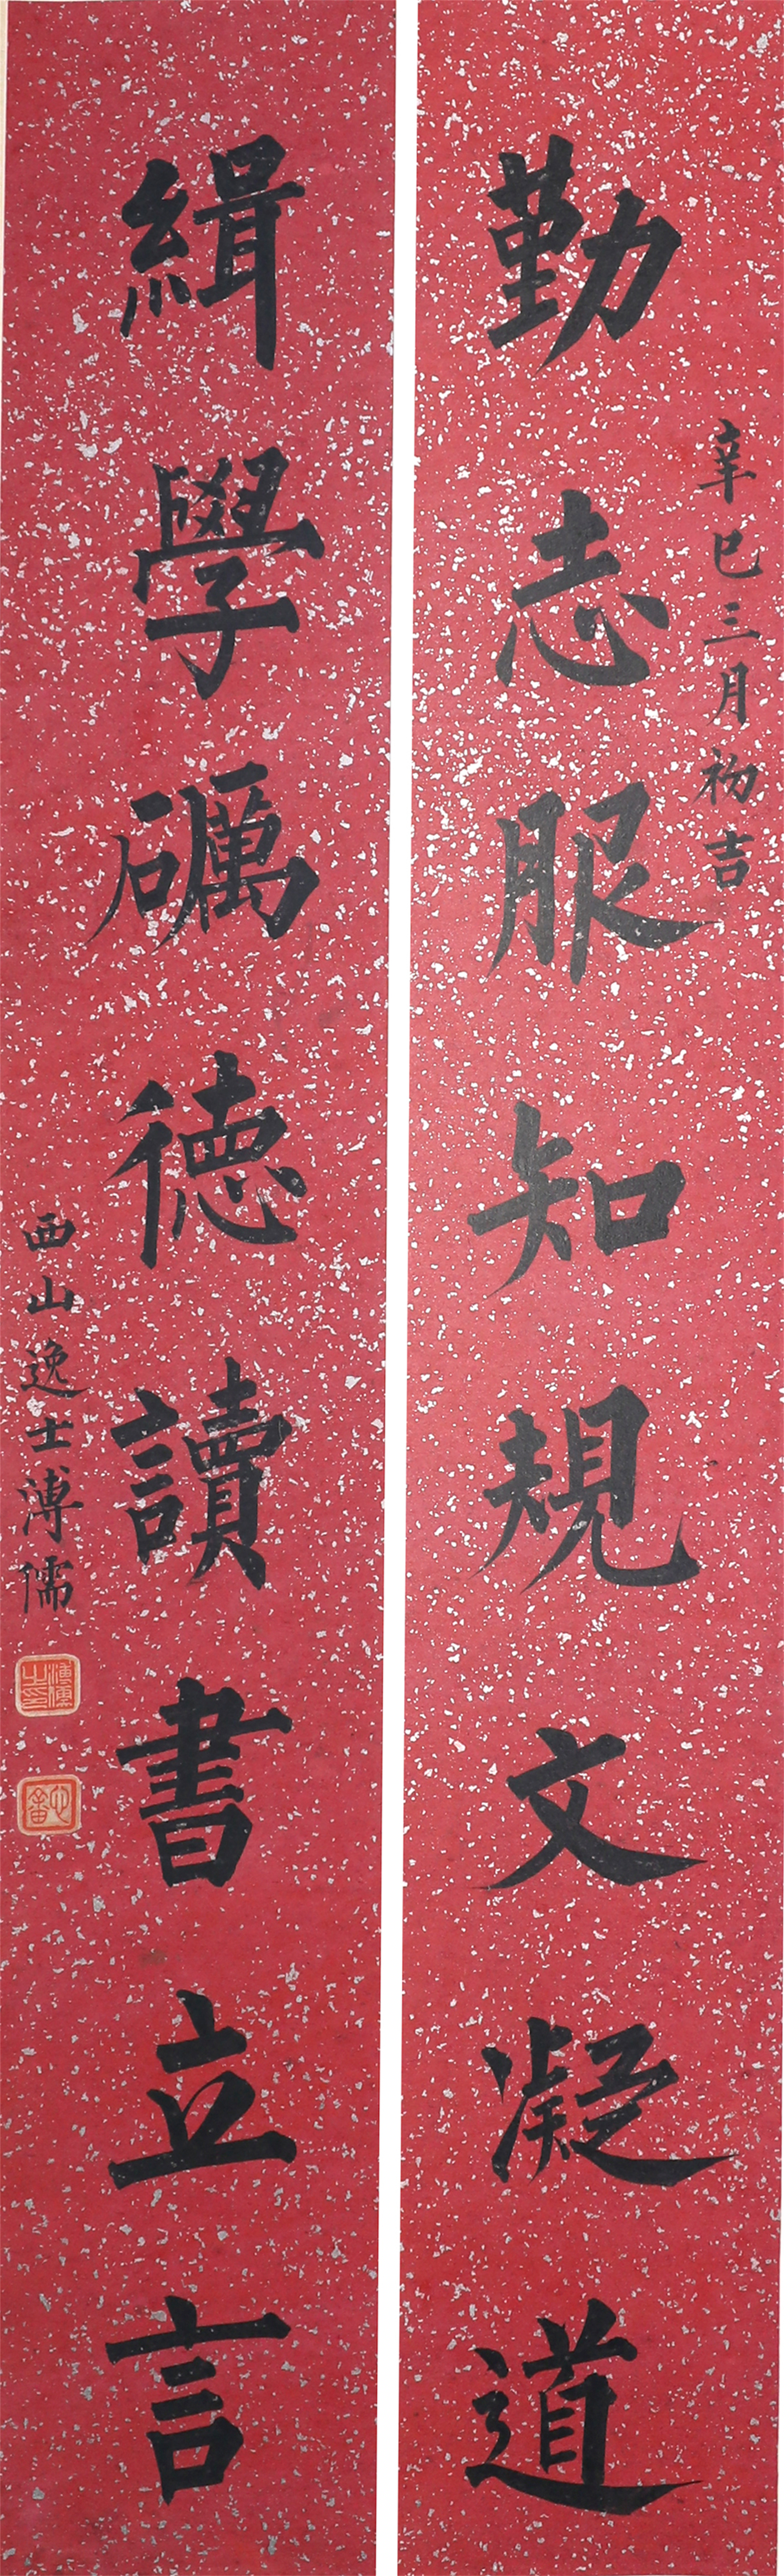 辛巳三月初吉
勤志服知規文凝道
緝學礪德讀書立言
西山逸士溥儒
溥儒之印
心畬